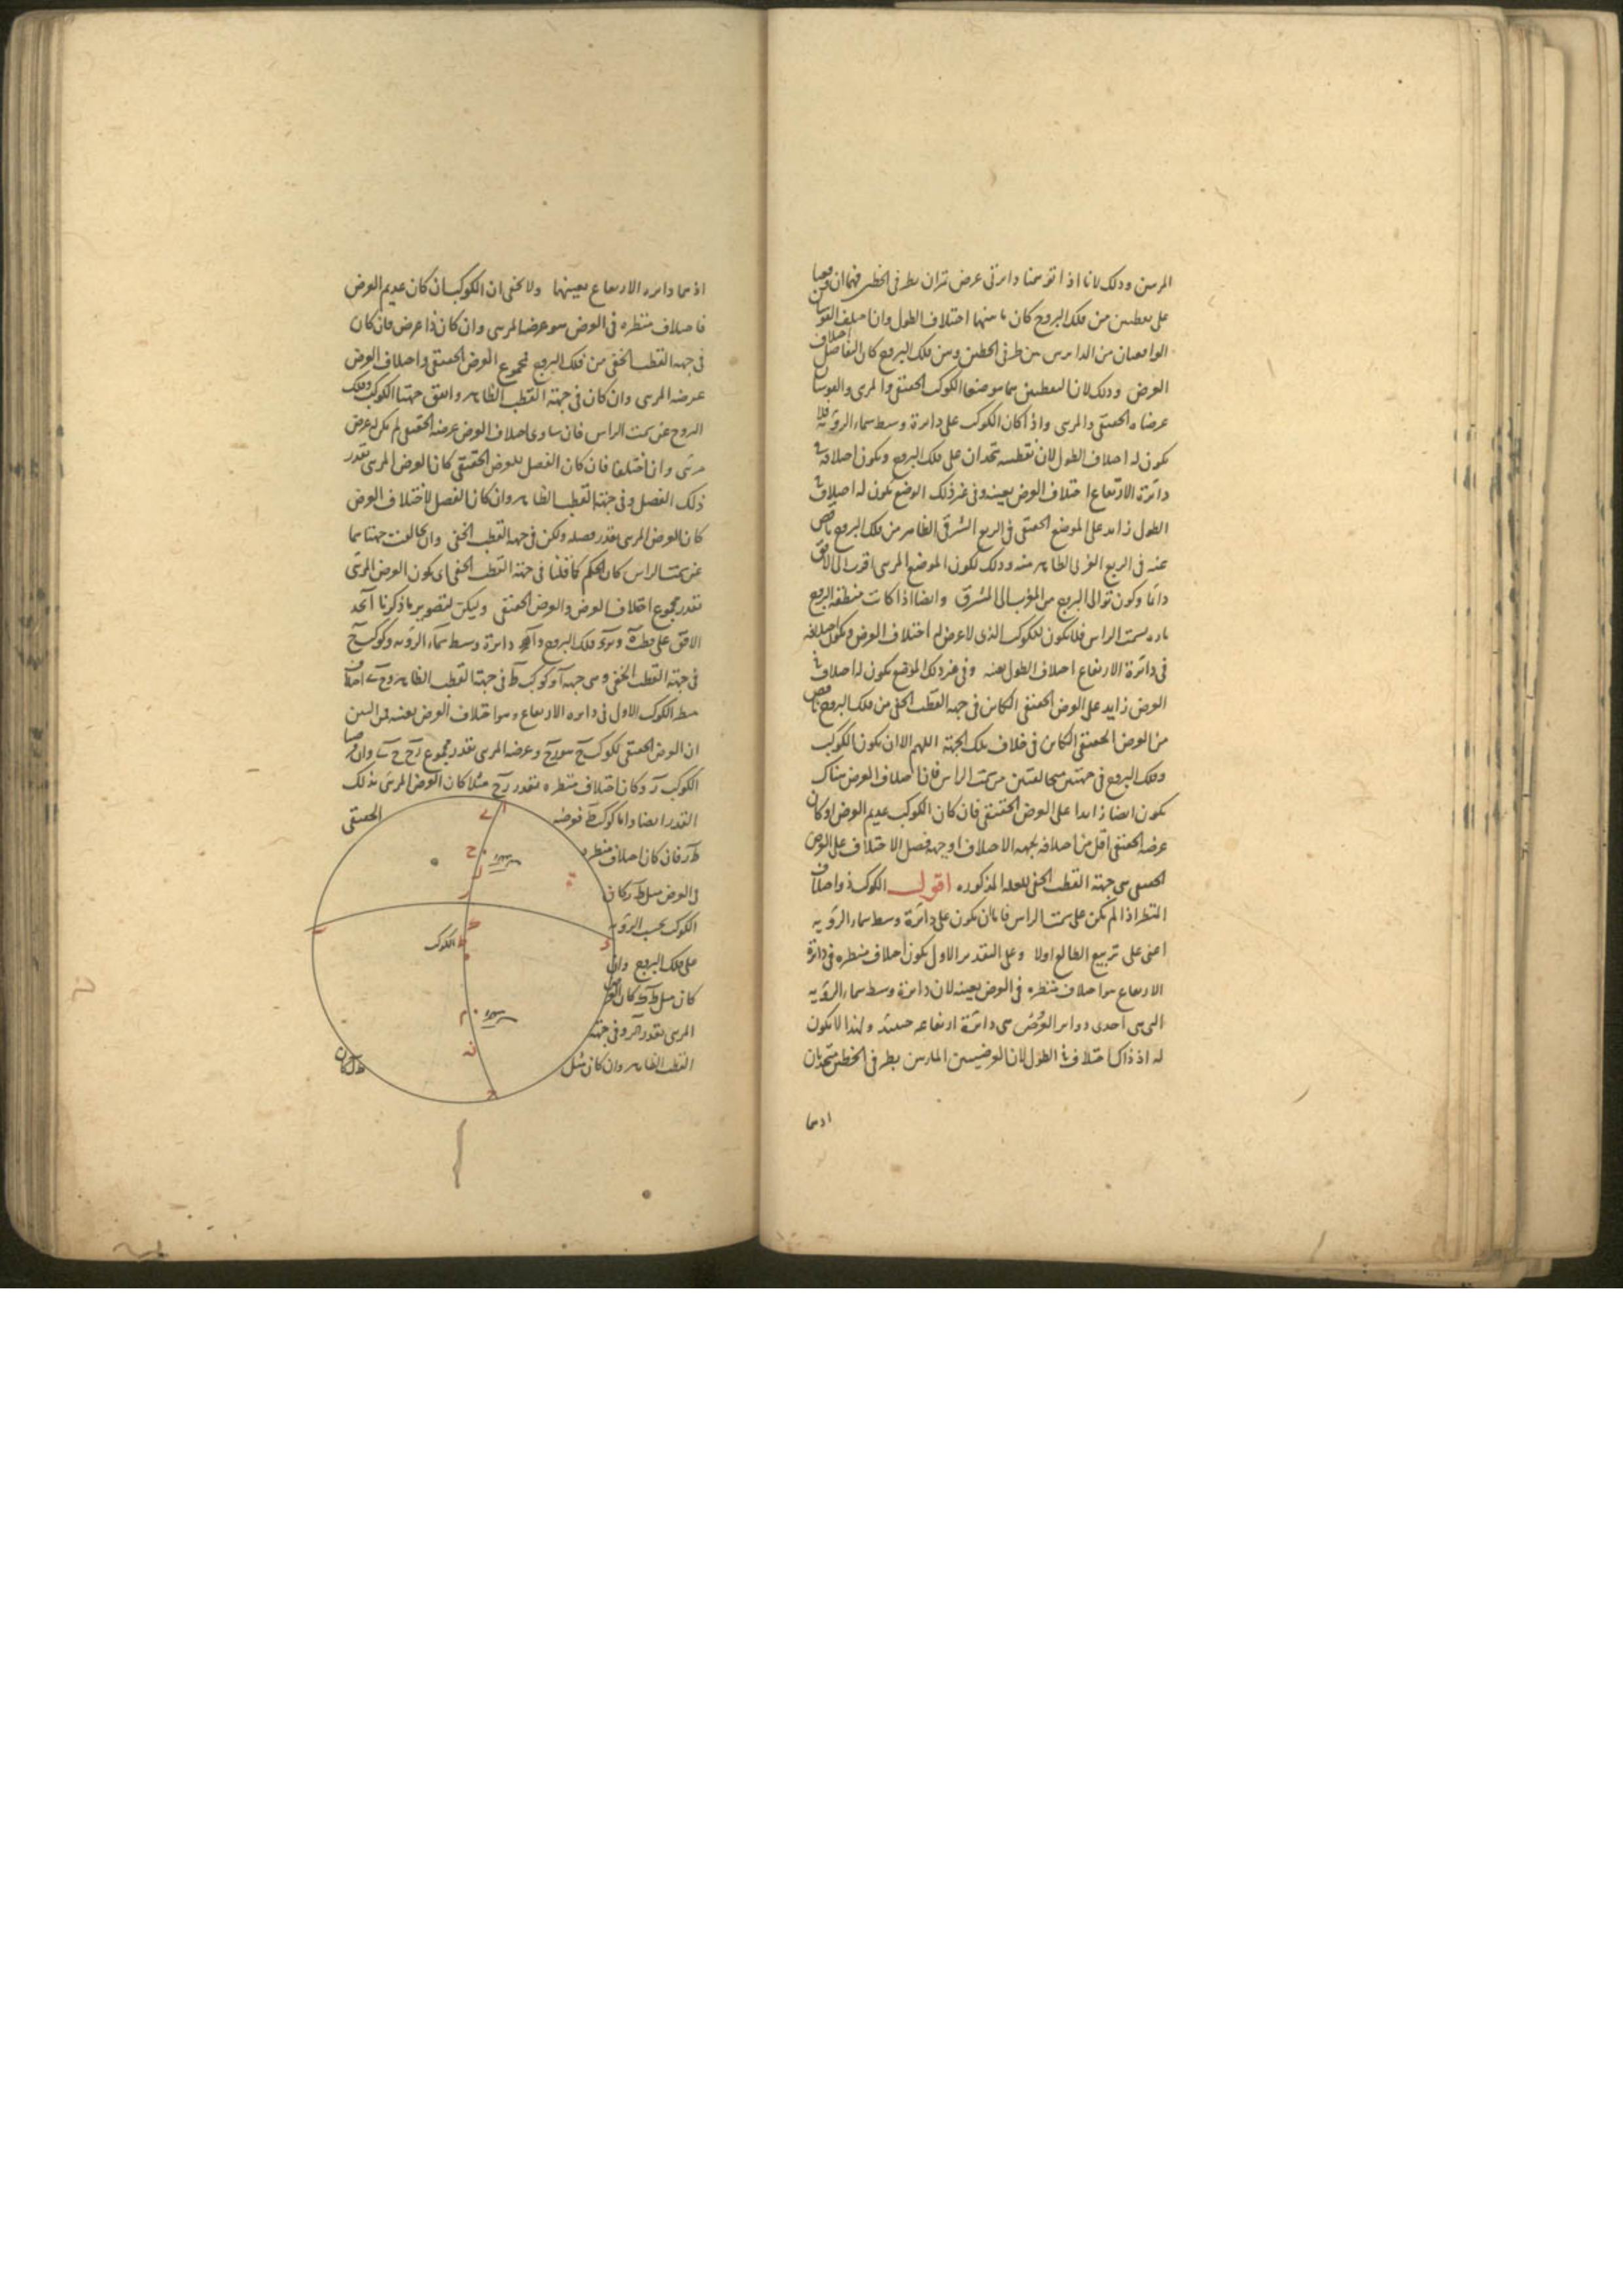 المرئيين وذلك لانا اذا توهمنا دائرتى عرض تمران بطرفى الخطين فهما ان وقعتا
على نقطتين من فلك البروج كان ما بينهما اختلاف الطول وان اختلف القوسان
الواقعتان من الدائرتين بين طرفى الخطين وبين فلك البروج كان التفاضل اختلاف
العرض وذلك لان النقطتين هما موضعا الكوكب الحقيقى والمرئى والقوسان
عرضاه الحقيقى والمرئى واذا كان الكوكب على دائرة وسط سماء الرؤية فلا
يكون له اختلاف الطول لان نقطتيه تتحدان على فلك البروج ويكون اختلافه فى
دائرة الارتفاع اختلاف العرض بعينه وفى غير ذلك الوضع يكون له اختلاف فى
الطول زائد على الموضع الحقيقى فى الربع الشرقى الظاهر من فلك البروج ناقص
عنه فى الربع الغربى الظاهر منه وذلك لكون الموضع المرئى اقرب الى الافق
دائما وكون توالى البروج من المغرب الى المشرق وايضا اذا كانت منطقة البروج
مارة بسمت الراس فلا يكون للكوكب الذى لا عرض له اختلاف العرض ويكون اختلافه
فى دائرة الارتفاع اختلاف الطول بعينه وفى غير ذلك الموقع يكون له اختلاف فى
العرض زايد على العرض الحقيقى الكائن فى جهة القطب الخفى من فلك البروج ناقص
من العرض الحقيقى الكائن فى خلاف تلك الجهة اللهم الا ان يكون الكوكب
وفلك البروج فى جهتين متخالفتين من سمت الراس فان اختلاف العرض هناك
يكون ايضا زايدا على العرض الحقيقى فان كان الكوكب عديم العرض او كان
عرضه الحقيقى اقل من اختلافه فجهة الاختلاف او جهة فضل الاختلاف على العرض
الحقيقى هى جهة القطب الخفى للعلة المذكورة اقول الكوكب ذو اختلاف
المنظر اذا لم يكن على سمت الراس فاما ان يكون على دائرة وسط سماء الرؤية
اعنى على تربيع الطالع اولا وعلى التقدير الاول يكون اختلاف منظره فى دائرة
الارتفاع هو اختلاف منظره فى العرض بعينه لان دائرة وسط سماء الرؤية
التى هى احدى دوائر العرض هى دائرة ارتفاعه حينئذ ولهذا لا يكون
له اذ ذاك اختلاف فى الطول لان العرضيتين المارتين بطرفى الخطين متحدتان
اذ هما
اذ هما دائرة الارتفاع بعينها ولا يخفى ان الكوكب ان كان عديم العرض
فاختلاف منظره فى العرض هو عرضه المرئى وان كان ذا عرض فان كان
فى جهة القطب الخفى من فلك البروج فمجموع العرض الحقيقى واختلاف العرض
عرضه المرئى وان كان فى جهة القطب الظاهر واتفق جهتا الكوكب وفلك
البروج عن سمت الراس فان ساوى اختلاف العرض عرضه الحقيقى لم يكن له عرض
مرئى وان اختلفا فان كان الفضل للعرض الحقيقى كان العرض المرئى بقدر
ذلك الفضل وفى جهة القطب الظاهر وان كان الفضل لاختلاف العرض
كان العرض المرئى بقدر فضله ولكن فى جهة القطب الخفى وان تخالفت جهتاهما
عن سمت الراس كان الحكم كما قلنا فى جهة القطب الخفى اى يكون العرض المرئى
بقدر مجموع اختلاف العرض والعرض الحقيقى وليكن لتصوير ما ذكرنا ا ب ج د
الافق على قطب ه و ب ر د فلك البروج و ا ه ج دائرة وسط سماء الرؤية وكوكب ح
فى جهة القطب الخفى وهى جهة ا وكوكب ط فى جهة القطب الظاهر و ح ى اختلاف
منظر الكوكب الاول فى دائرة الارتفاع وهو اختلاف العرض بعينه فمن البين
ان العرض الحقيقى لكوكب ح هو ر ح وعرضه المرئى بقدر مجموع ر ح ح ى وان فرضنا
الكوكب ر وكان اختلاف منظره بقدر ر ح مثلا كان العرض المرئى بذلك
القدر ايضا واما كوكب ط فعرضه الحقيقى
ط ر فان كان اختلاف منظره
فى العرض مثل ط ر كان
الكوكب بحسب الرؤية
على فلك البروج وان
كان مثل ط ك كان العرض
المرئى بقدر ك ر وفى جهة
القطب الظاهر وان كان مثل
ط ل كان
الكوكب